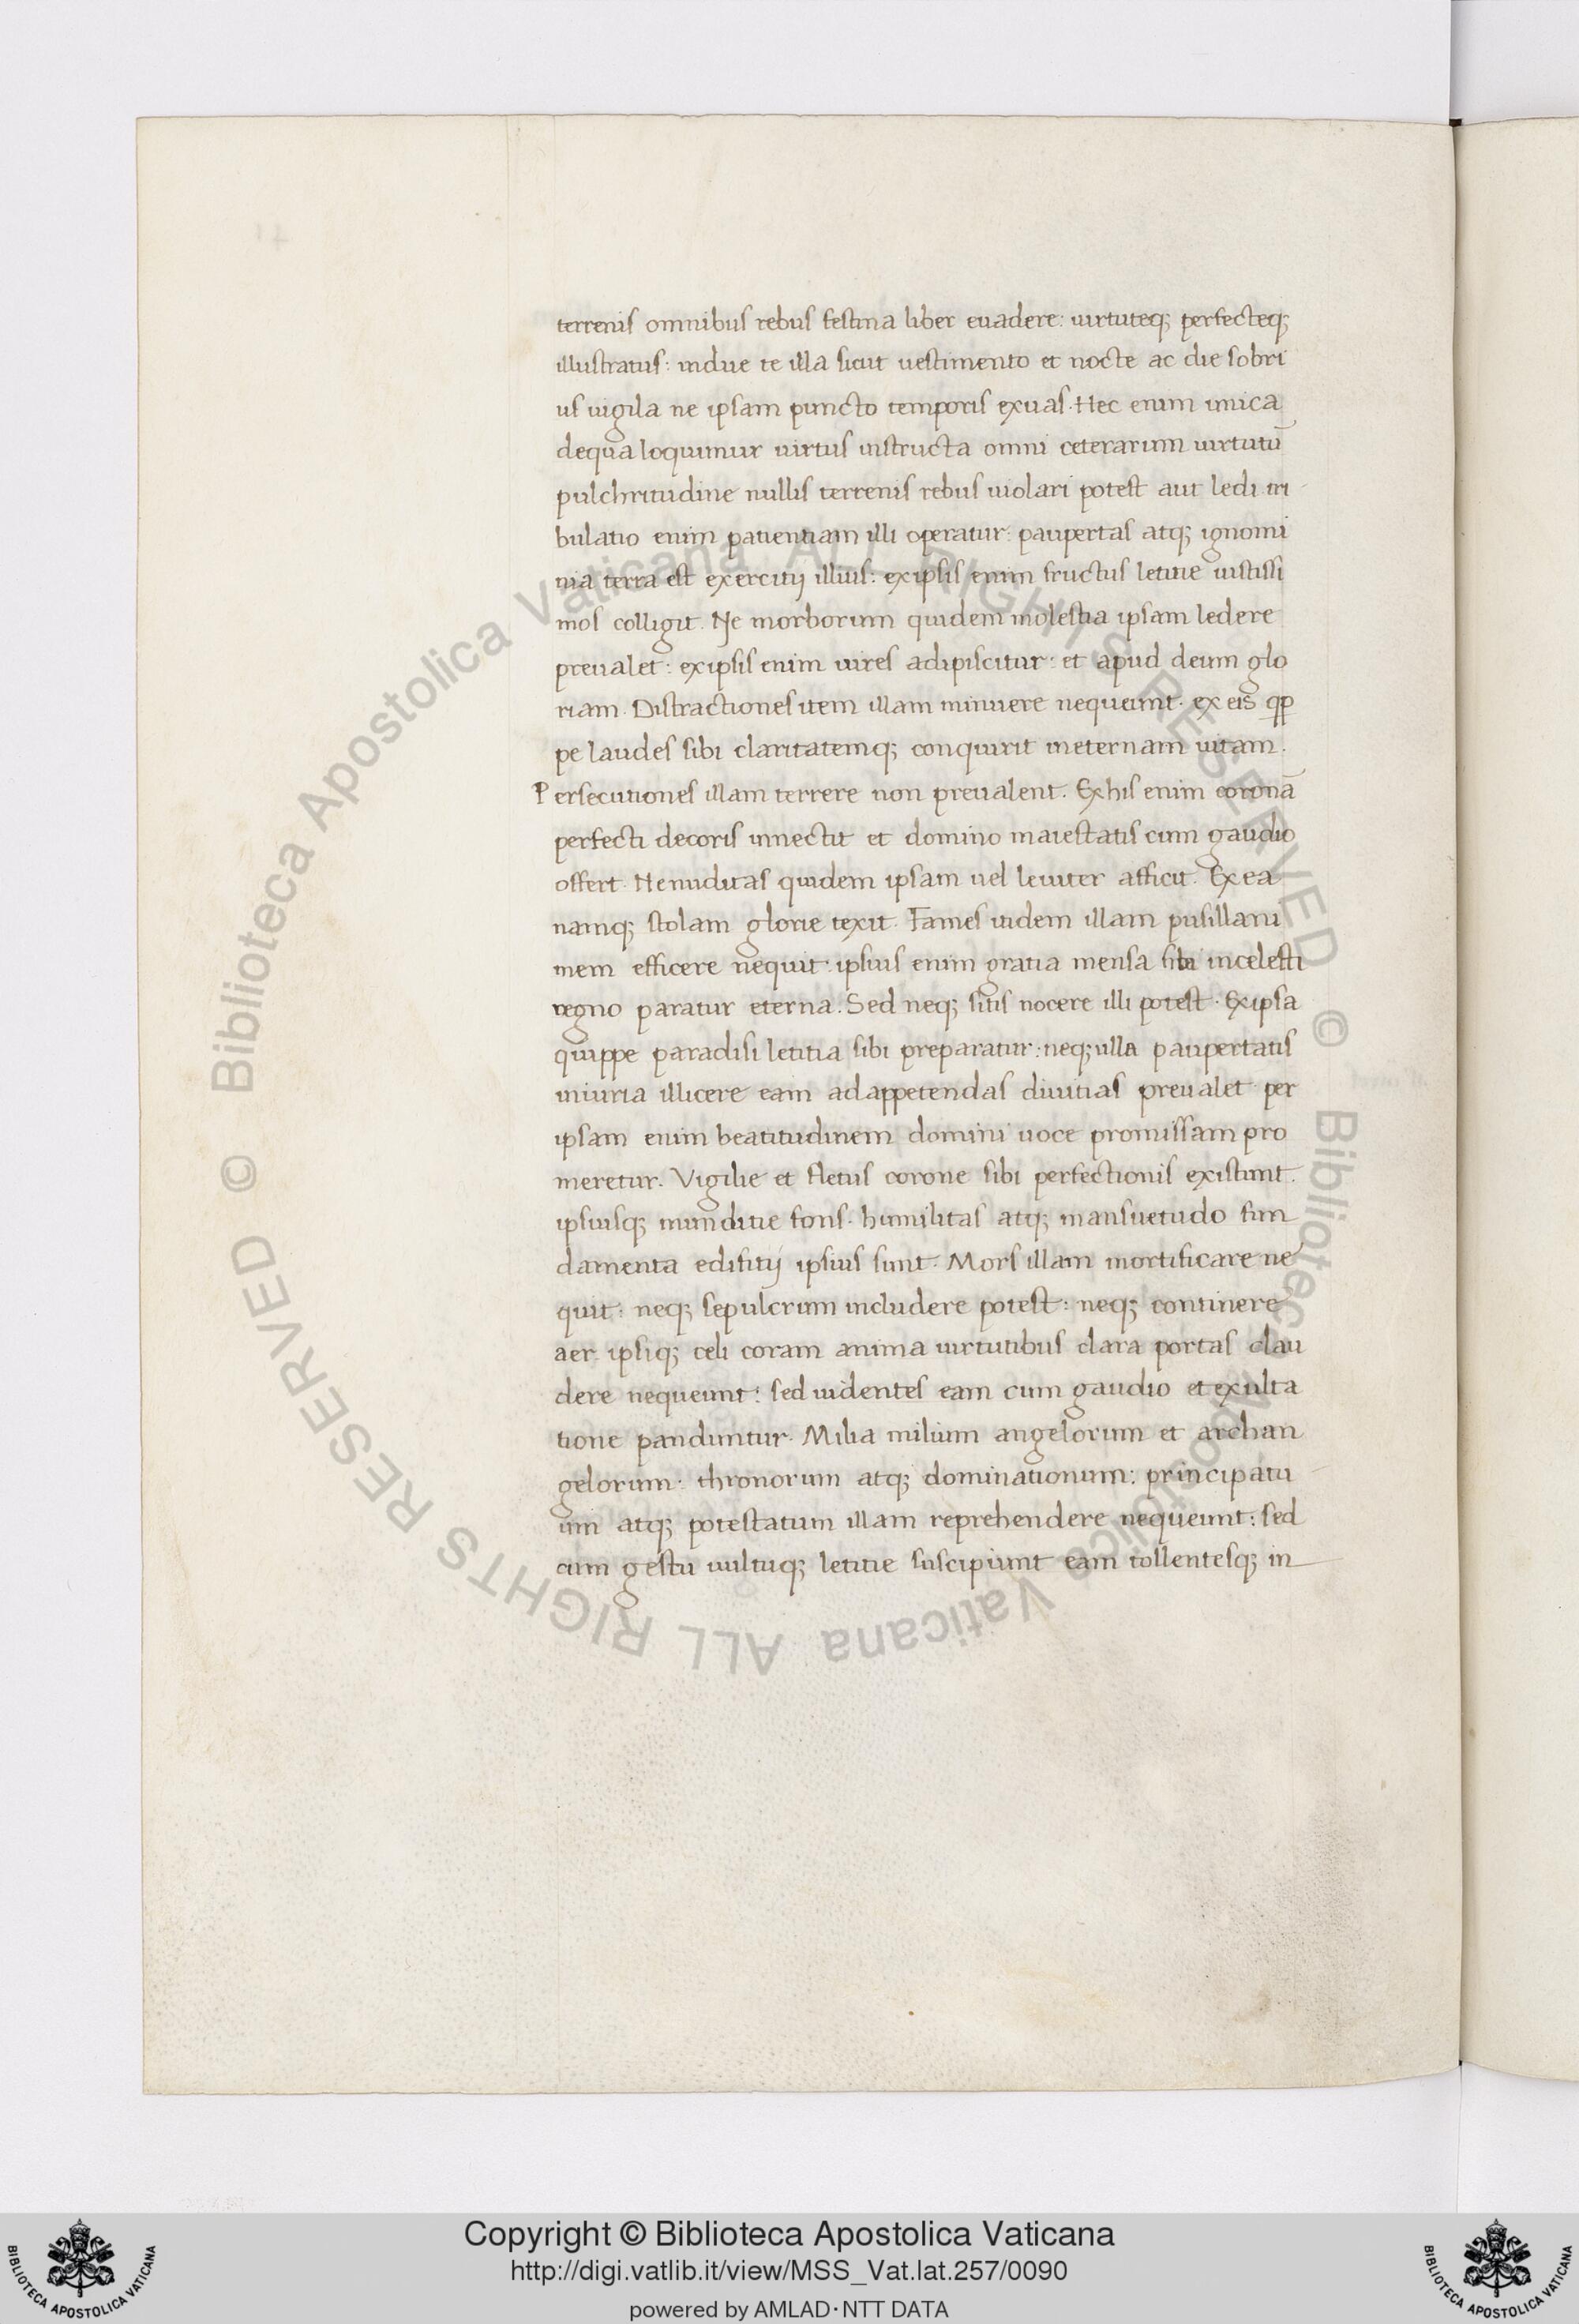 terrenis omnibus rebus festina liber euadere: uirtuteq; perfecteq;
illustratus: indue te illa sicut uestimento et nocte ac die sobri
us uigila ne ipsam puncto temporis exuas. Hec enim unica
dequa loquimur uirtus instructa omni ceterarum uirtutū
pulchritudine nullis terrenis rebus uiolari potest aut ledi. tri
bulatio enim patientiam illi operatur: paupertas atq; ignomi
nia terra est exercitij illius: exipsis enim fructus letitie iustissi
mos colligit. Ne morborum quidem molestia ipsam ledere
preualet: exipsis enim uires adipiscitur: et apud deum glo
riam. Distractiones item illam minuere nequeunt. ex eis qp
pe laudes sibi claritatemq; conquirit ineternam uitam.
Persecutiones illam terrere non preualent. Exhis enim coronā
perfecti decoris innectit et domino maiestatis cum gaudio
offert. Nenuditas quidem ipsam uel leuiter afficit. Exea
namq; stolam glorie texit. Fames itidem illam pusillani
mem efficere nequit. ipsius enim gratia mensa sibi incelesti
regno paratur eterna. Sed neq; sitis nocere illi potest. Exipsa
quippe paradisi letitia sibi preparatur: neq; ulla paupertatis
iniuria illicere eam adappetendas diuitias preualet. per
ipsam enim beatitudinem domini uoce promissam pro
meretur. Vigilie et fletus corone sibi perfectionis existunt.
ipsiusq; munditie fons. humilitas atq; mansuetudo fun
damenta edifitij ipsius sunt. Mors illam mortificare ne
quit: neq; sepulcrum includere potest: neq; continere
aer. ipsiq; celi coram anima uirtutibus clara portas clau
dere nequeunt: sed uidentes eam cum gaudio et exulta
tione panduntur. Milia milium angelorum et archan
gelorum: thronorum atq; dominationum: principatu
um atq; potestatum illam reprehendere nequeunt: sed
cum gestu uultuq; letitie suscipiunt eam tollentesq; in
© Biblioteca Apostolica Vaticana ALL RIGHTS RESERVED © Biblioteca Apostolica Vaticana ALL RIGHTS RESERVED
Copyright © Biblioteca Apostolica Vaticana
http://digi.vatlib.it/view/MSS_Vat.lat.257/0090
powered by AMLAD·NTT DATA
BIBLIOTECA APOSTOLICA VATICANA
BIBLIOTECA APOSTOLICA VATICANA